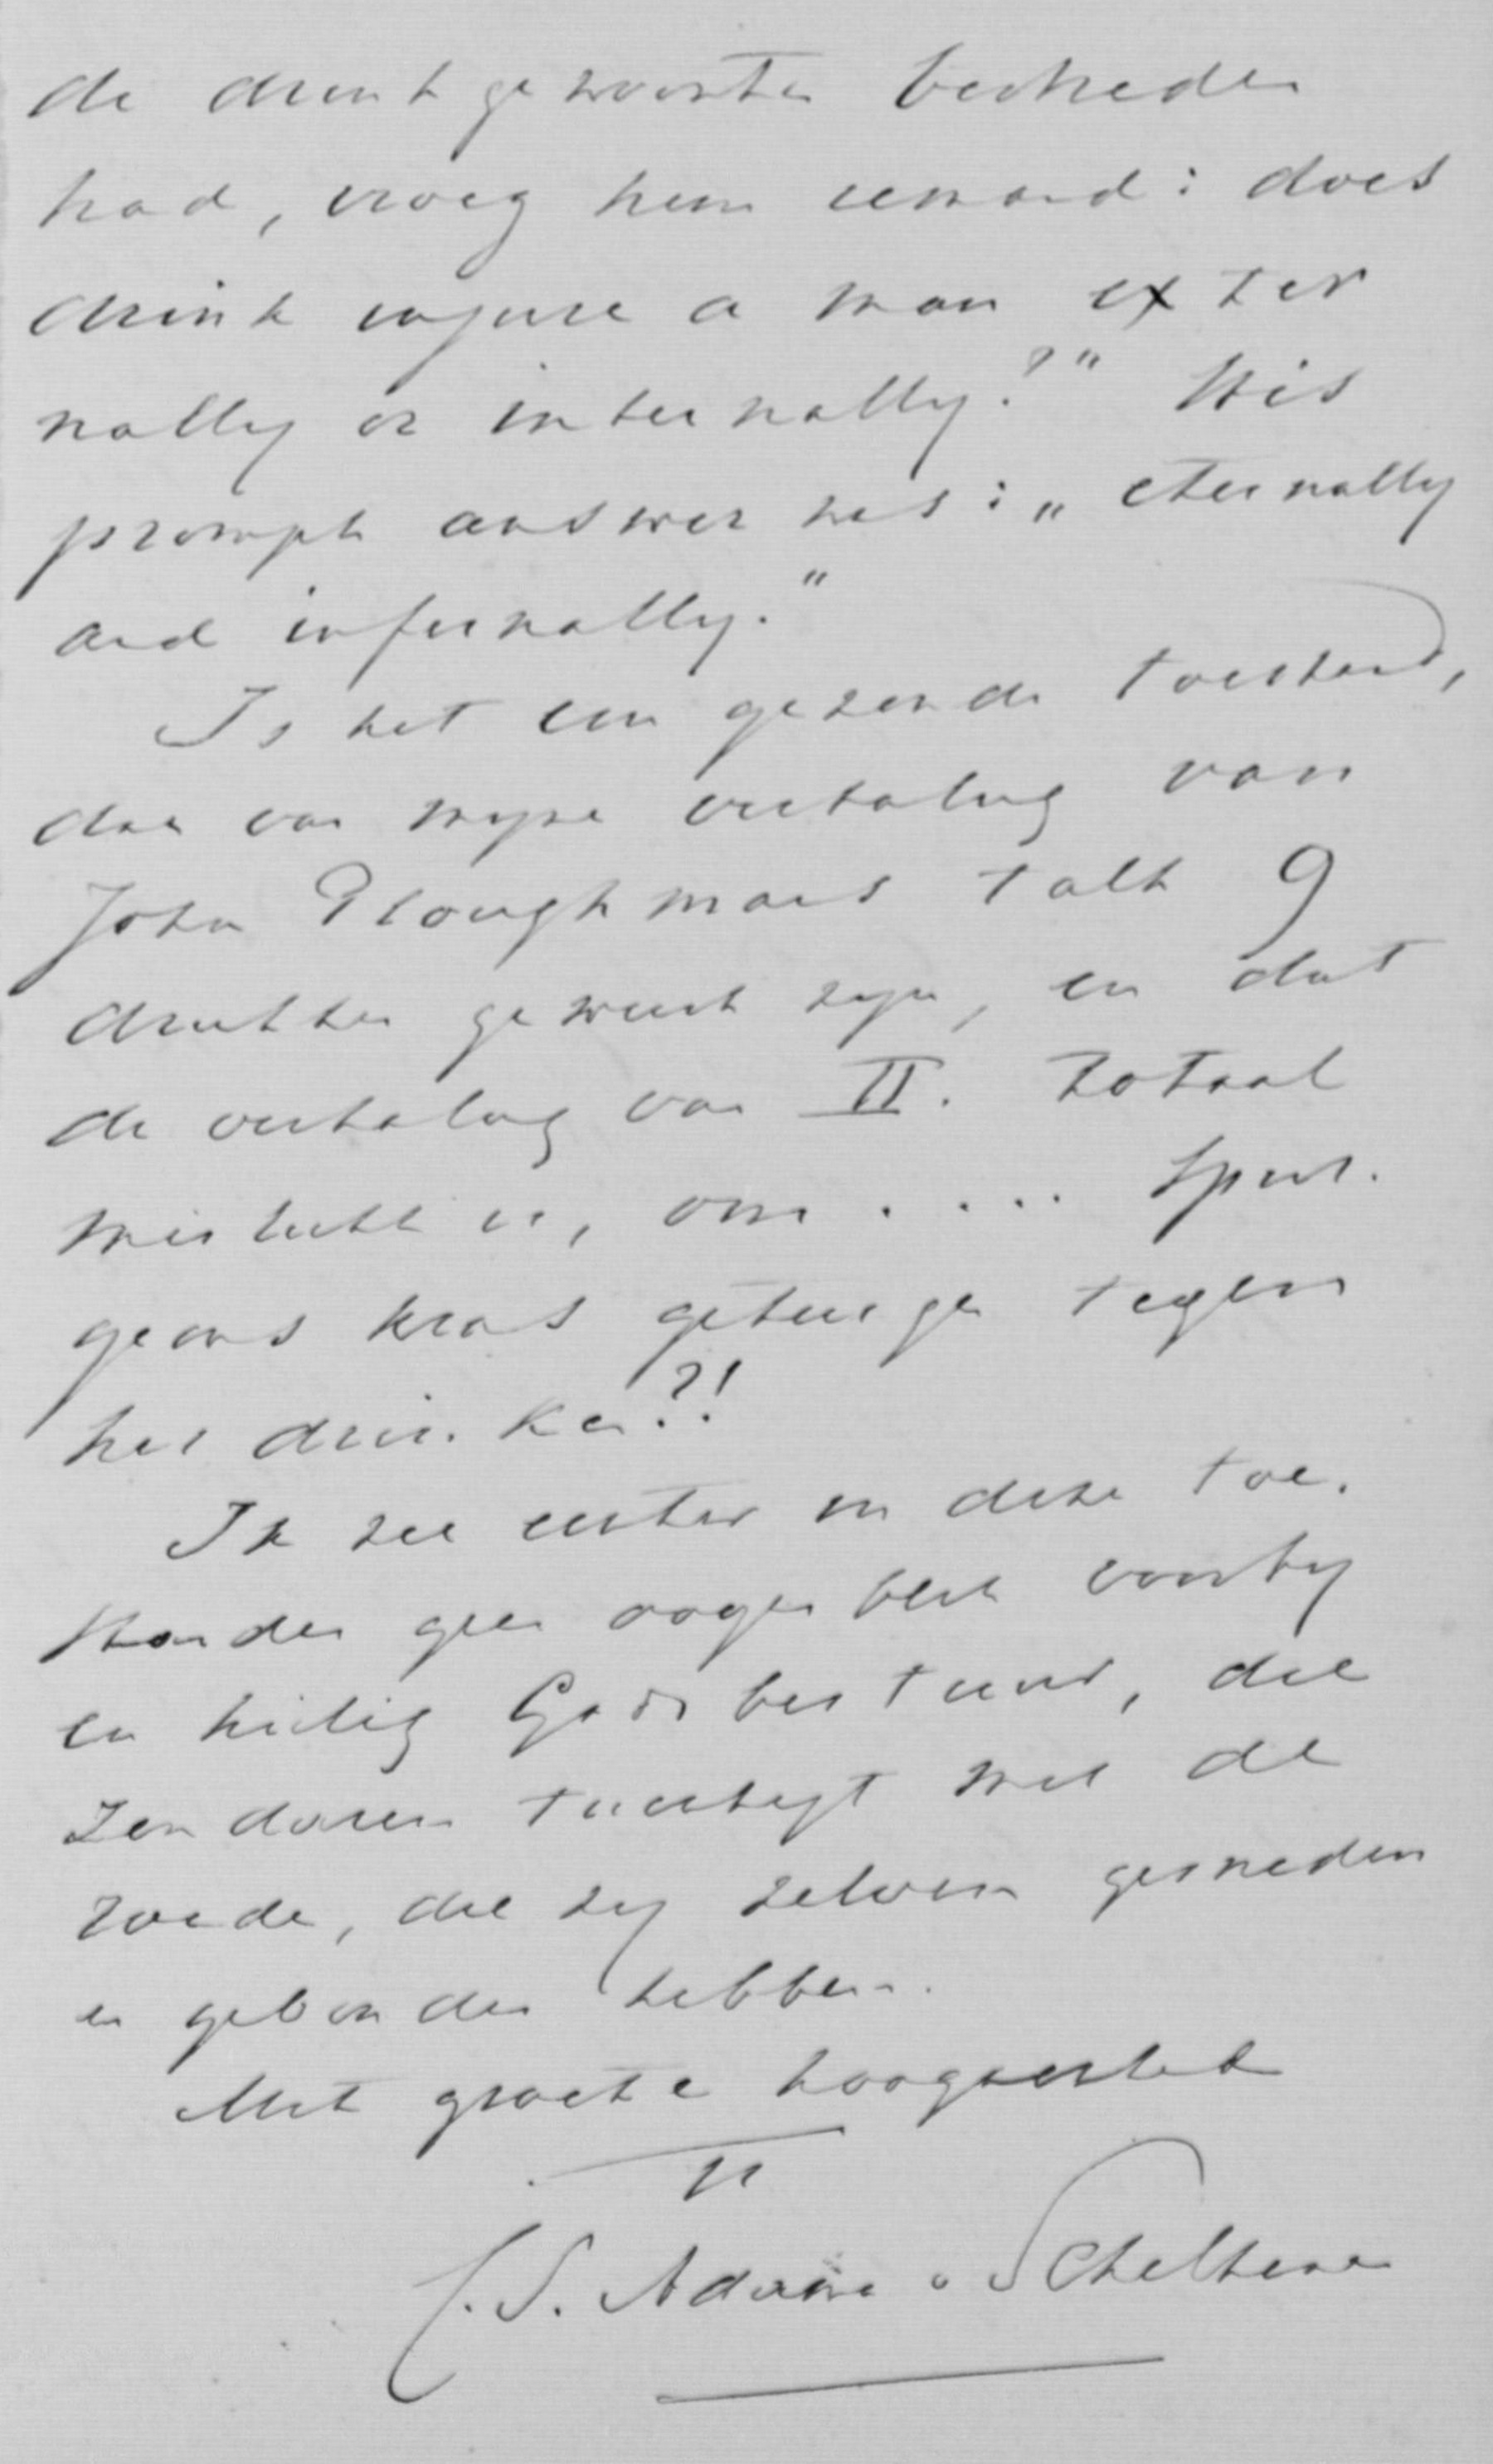 de drinkgewoonte bestreden
had, vroeg hem iemand: does
drink injure a man exter
nally or internally?" His
prompt answer was: „eternally
and infernally."
Is het een gezonde toestand,
dat van mijne vertaling van
John Ploughmans talk 9
drukken geweest zijn, en dat
de vertaling van II. totaal
mislukt is, om .... Spur.
geons kras getuige tegen
het drinken?!
Ik zie echter in deze toe.
standen geen oogenblik voorbij
en heilig Godsbestuur, die
zondaren tuchtigt met de
roede, die zij zelven gesneden
en gebonden hebben.
Met groete hoogachtend
C. S. Adama v Scheltema